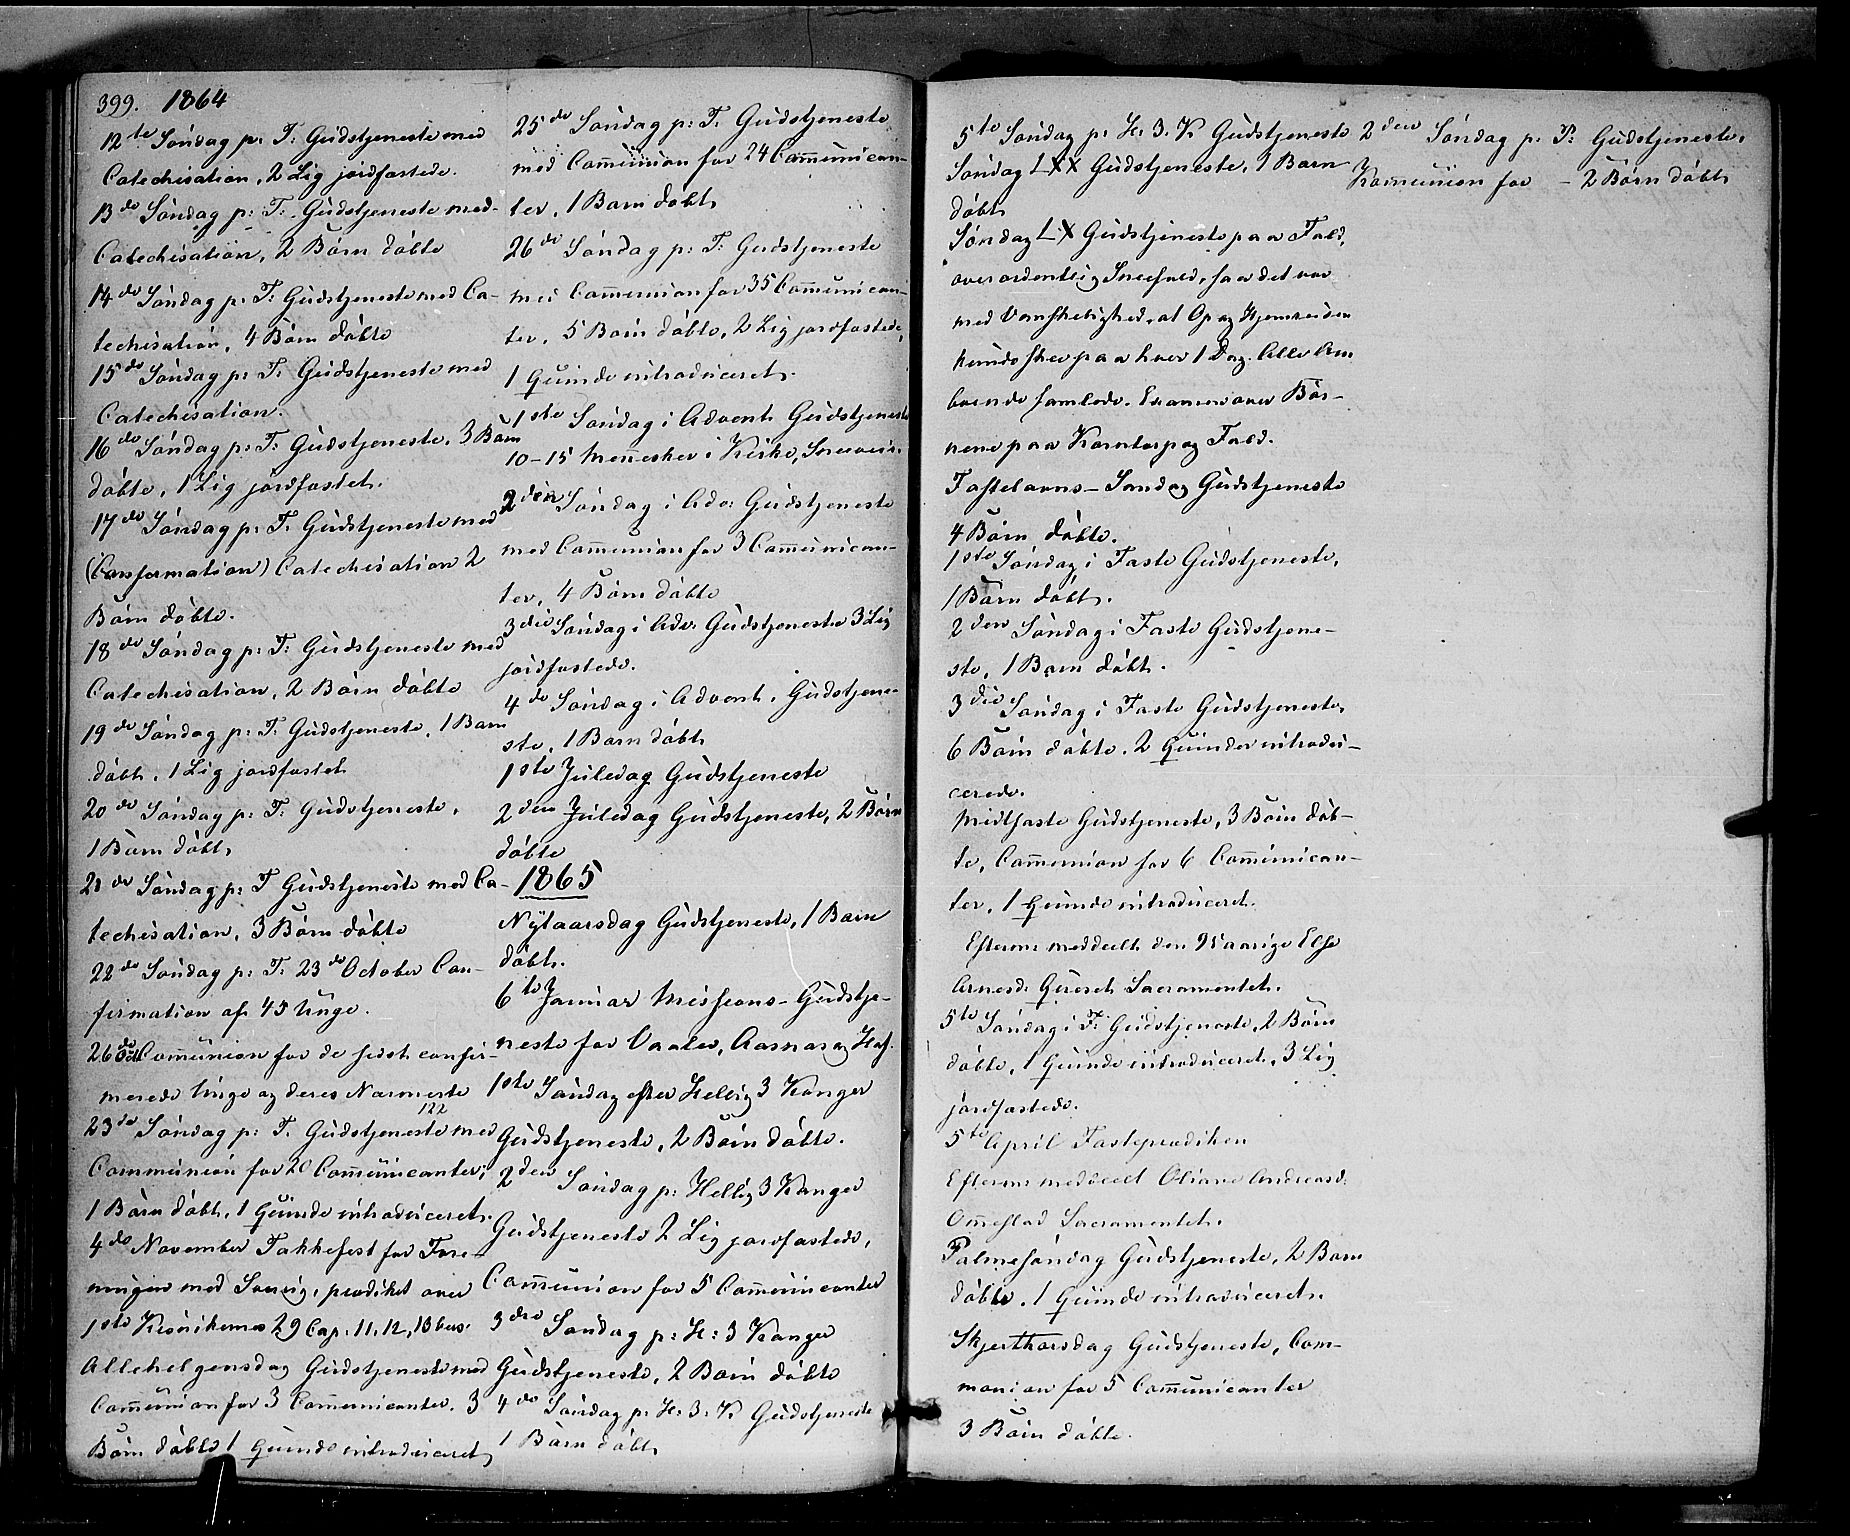 399. 1864
12te Søndag p: T: Gudstjeneste med
Catechisation, 2 Lig jordfæstede.
13de Søndag p: T: Gudstjeneste med
Catechisation, 2 Børn døbte
14de Søndag p: T: Gudstjeneste med Ca-
techisation, 4 Børn døbte
15de Søndag p: T: Gudstjeneste med
Catechisation.
16de Søndag p: T: Gudstjeneste, 3 Børn
døbte, 1 Lig jordfæstet.
17de Søndag p: T: Gudstjeneste med
(Confermation) Catechisation 2
Børn døbte.
18de Søndag p: T: Gudstjeneste med
Catechisation, 2 Børn døbte
19de Søndag p: T: Gudstjeneste, 1 Barn
døbt, 1 Lig jordfæstet
20de Søndag p: T: Gudstjeneste,
1 Barn døbt,
21de Søndag p: T Gudstjeneste med Ca-
techisation, 3 Børn døbte
22de Søndag p: T: 23de October Con-
firmation af 45 Unge.
26de Oct Communion for de sidst confir-
merede Unge og deres Nærmeste
122
23de Søndag p: T. Gudstjeneste med
Communion for 20 Communicanter;
1 Barn døbt, 1 Quinde introduceret.
4de November Takkefest for Fore-
ningen med Sverig, prædiket over
1ste Krønikernes 29 Cap: 11, 12, 13 Vers.
Allehelgensdag Gudstjeneste med
Communion for 3 Communicanter. 3
Børn døbte 1 Quinde introduceret
25de Søndag p: T: Gudstjeneste
med Communion for 24 Communican-
ter, 1 Barn døbt,
26de Søndag p: T: Gudstjeneste
med Communion for 35 Communican-
ter, 5 Børn døbte, 2 Lig jordfæstede,
1 Quinde introduceret.
1ste Søndag i Advent Gudstjeneste
10-15 Mennesker i Kirke, Sneeveir.
2den Søndag i Adv: Gudstjeneste
med Communion for 3 Communican-
ter, 4 Børn døbte
3die Søndag i Adv: Gudstjeneste 3 Lig
jordfæstede.
4de Søndag i Advent, Gudstjene-
ste, 1 Barn døbt,
1ste Juledag Gudstjeneste
2den Juledag Gudstjeneste, 2 Børn
døbte
1865
Nytaarsdag Gudstjeneste, 1 Barn
døbt.
6te Januar Missions-Gudstje-
neste for Vaaler, Aasnæs og Hof.
1ste Søndag efter Hellig 3 Konger
Gudstjeneste, 2 Børn døbte.
2den Søndag p: Hellig 3 Konger
Gudstjeneste 2 Lig jordfæstede,
Communion for 5 Communicanter
3die Søndag p: H: 3 Konger
Gudstjeneste, 2 Børn døbte
4de Søndag p: H: 3: K Gudstjeneste
1 Barn døbt,
5te Søndag p: H: 3. K Gudstjeneste
Søndag LXX Gudstjeneste, 1 Barn
døbt,
Søndag LX Gudstjeneste paa Fald,
overordentlig Sneefald, saa det var
med Vanskelighed, at Op og Hjemreisen
kunde skee paa hver 1 Dag. Alle Om
boende samlede. Examen over Bør-
nene paa Korntorp og Fald.
Fastelavns-Søndag Gudstjeneste
4 Børn døbte.
1ste Søndag i Faste Gudstjeneste,
1 Barn døbt.
2den Søndag i Faste Gudstjene-
ste, 1 Barn døbt.
3die Søndag i Faste Gudstjeneste,
6 Børn døbte. 2 Quinder introdu-
cerede.
Midtfaste Gudstjeneste, 3 Børn døb-
te, Communion for 6 Communican-
ter, 1 Quinde introduceret.
Efterm: meddeelt den 25 aarige Else
Arnesd: Sacramentet.
5te Søndag i F: Gudstjeneste, 2 Børn
døbte, 1 Quinde introduceret, 3 Lig
jordfæstede.
5te April Fasteprædiken
Efterm: meddeelt Oliane Andreasd:
Ommestad Sacramentet.
Palmesøndag Gudstjeneste, 2 Børn
døbte. 1 Quinde introduceret.
Skjerthorsdag Gudstjeneste, Com-
munion for 5 Communicanter
3 Børn døbte.
2den Søndag p: P: Gudstjeneste,
Kommunion for - 2 Børn døbt,